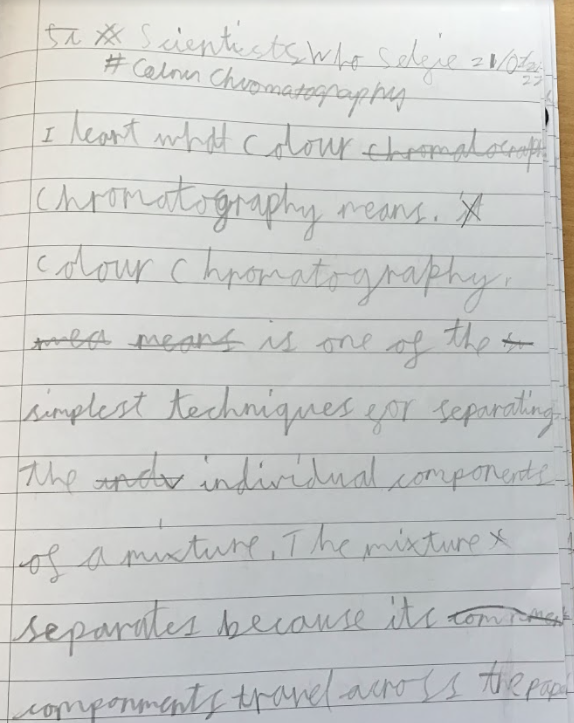 Scientists Who Selfie
# Colour Chromatography
I learnt what colour
chromatography means.
colour chromatography.
means is one of the
simplest techniques for separating
the individual components
of a mixture. The mixture
separates because its
componments travel across the